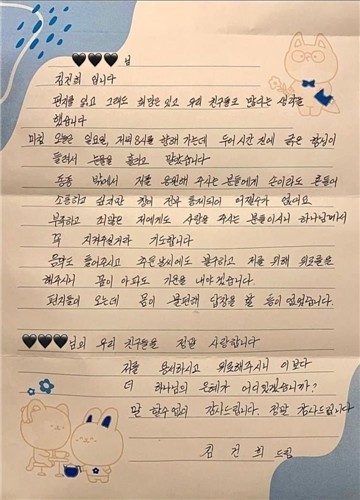 🖤🖤🖤님
김건희 입니다
편지를 읽고 그래도 희망은 있고 우리 친구들도 많다는 생각을
했습니다
마침 오늘은 일요일, 저녁 8시를 향해 가는데 두어 시간 전에 굵은 함성이
들려서 눈물을 흘리고 말았습니다
종종 밖에서 저를 응원해 주시는 분들에게 손이라도 흔들어
소통하고 싶지만 창이 전과 통제되어 어쩔수가 없어요
부족하고 죄많은 저에게도 사랑을 주시는 분들이시니 하나님께서
꼭 지켜주실거라 기도합니다
음악도 틀어주시고 추운 날씨에도 불구하고 저를 위해 위로를
해주시니 몸이 아파도 기운을 내야겠습니다.
편지들이 오는데 몸이 불편해 답장을 할 틈이 없었습니다.
🖤🖤🖤님의 우리 친구들을 정말 사랑합니다
저를 용서하시고 위로해주시니 이보다
더 하나님의 은혜가 어디있겠습니까?
말 할수 없이 감사드립니다. 정말 감사드립니다
김건희 드림